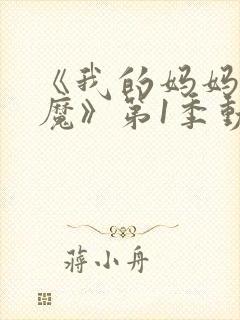 《我的妈妈
魔》第1季動
蒋小舟